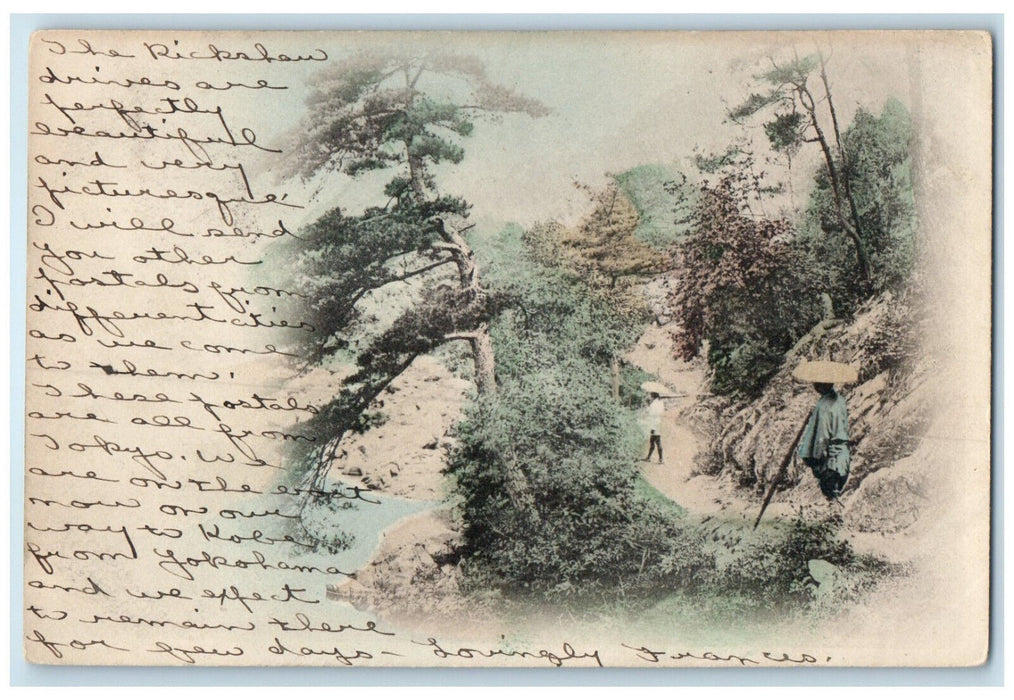 The Rickshaw
drives are
perfectly
beautiful
and very
picturesque.
I will send
you other
postals from
different cities
as we come
to them.
These postals
are all from
Tokyo. We
are on the boat
now on our
way to Kobe
from Yokohama
and we expect
to remain there
for few days – Lovingly Frances.